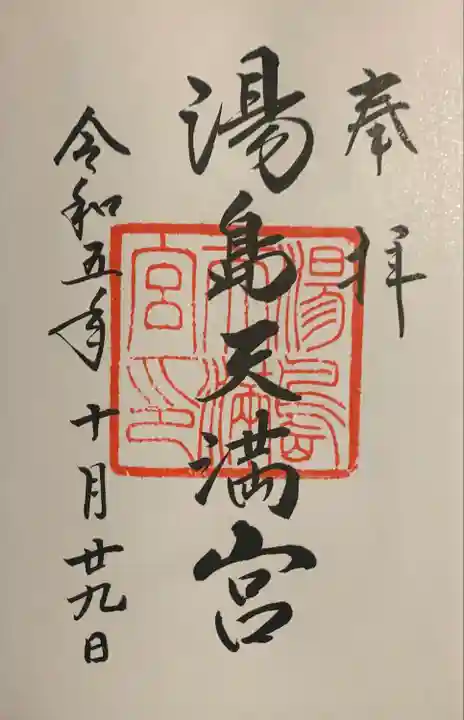 奉拝
湯島天満宮
湯島
天満
宮印
令和五年十月廿九日